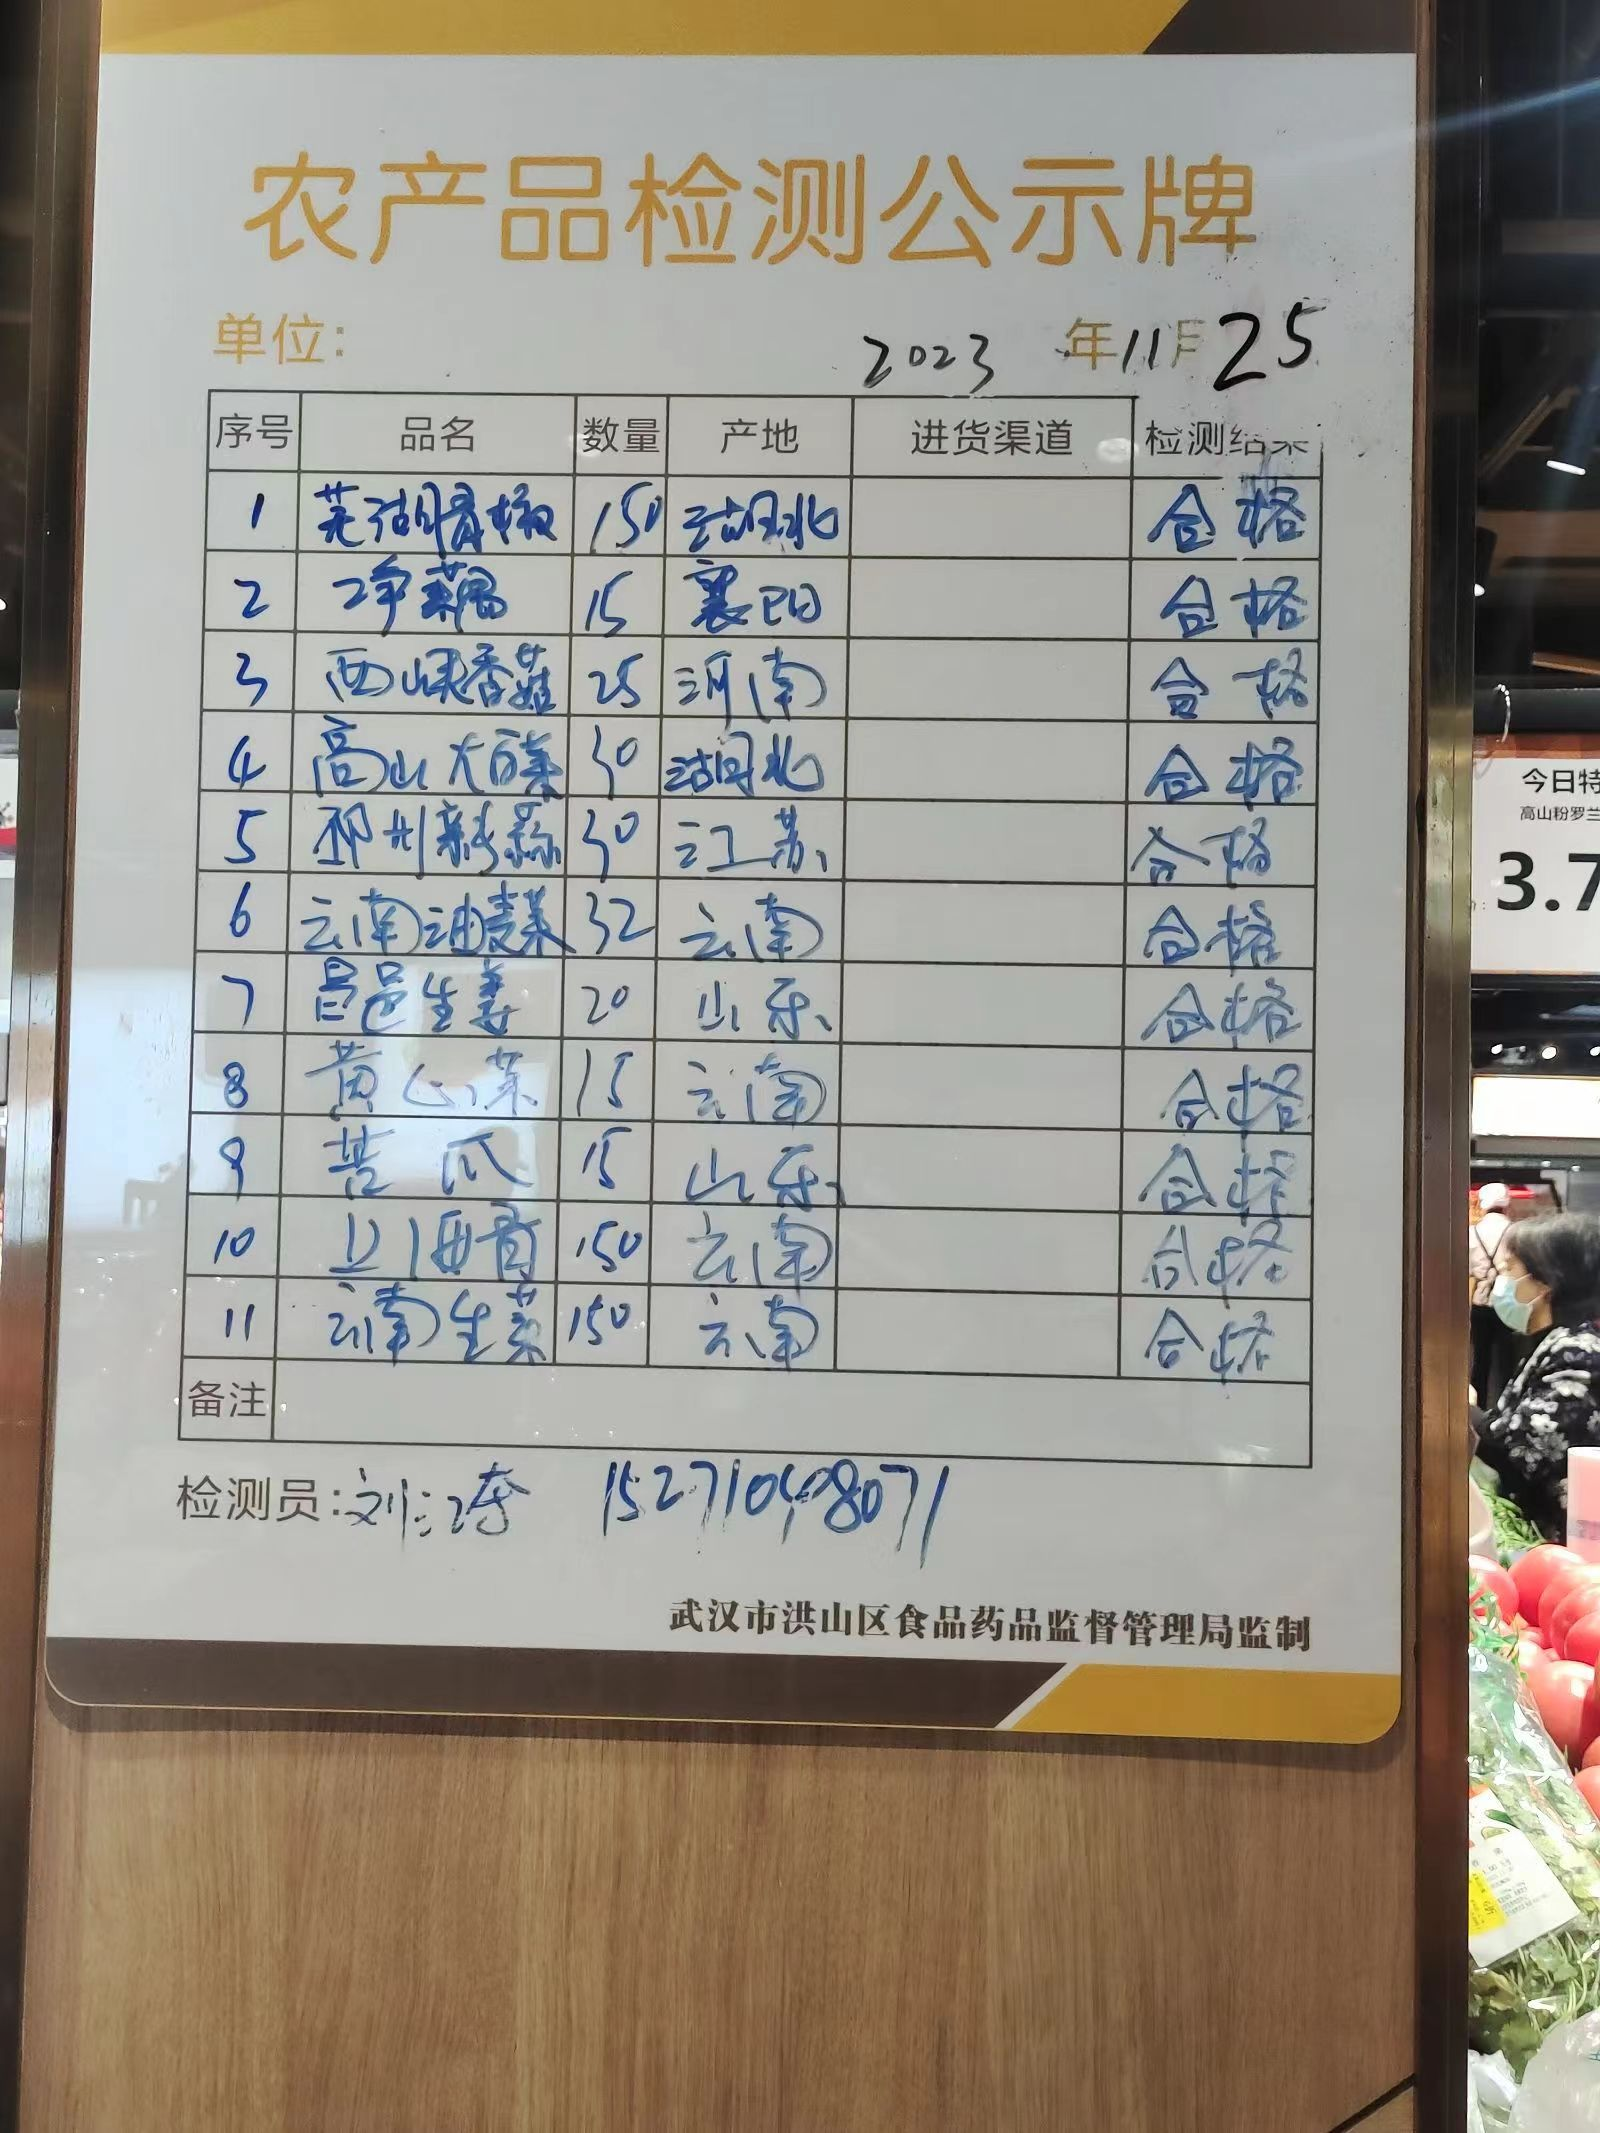 农产品检测公示牌
单位: 2023 年 11 月 25
序号 品名 数量 产地 进货渠道 检测结果
1 芜湖青椒 150 湖北 合格
2 净藕 15 襄阳 合格
3 西峡香菇 25 河南 合格
4 高山大白菜 30 湖北 合格
5 邳州新蒜 30 江苏 合格
6 云南油麦菜 32 云南 合格
7 昌邑生姜 20 山东 合格
8 黄心菜 15 云南 合格
9 苦瓜 15 山东 合格
10 上海青 150 云南 合格
11 云南生菜 150 云南 合格
备注
检测员: 刘 15271048071
武汉市洪山区食品药品监督管理局监制
今日特
高山粉罗兰
3.7